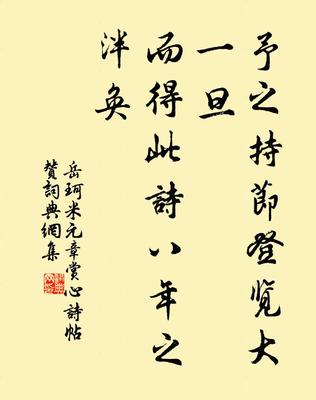 予之持節登览大
一旦
而得此詩八年之
泮奂
岳珂米元章赏心詩帖
赞詞典網集